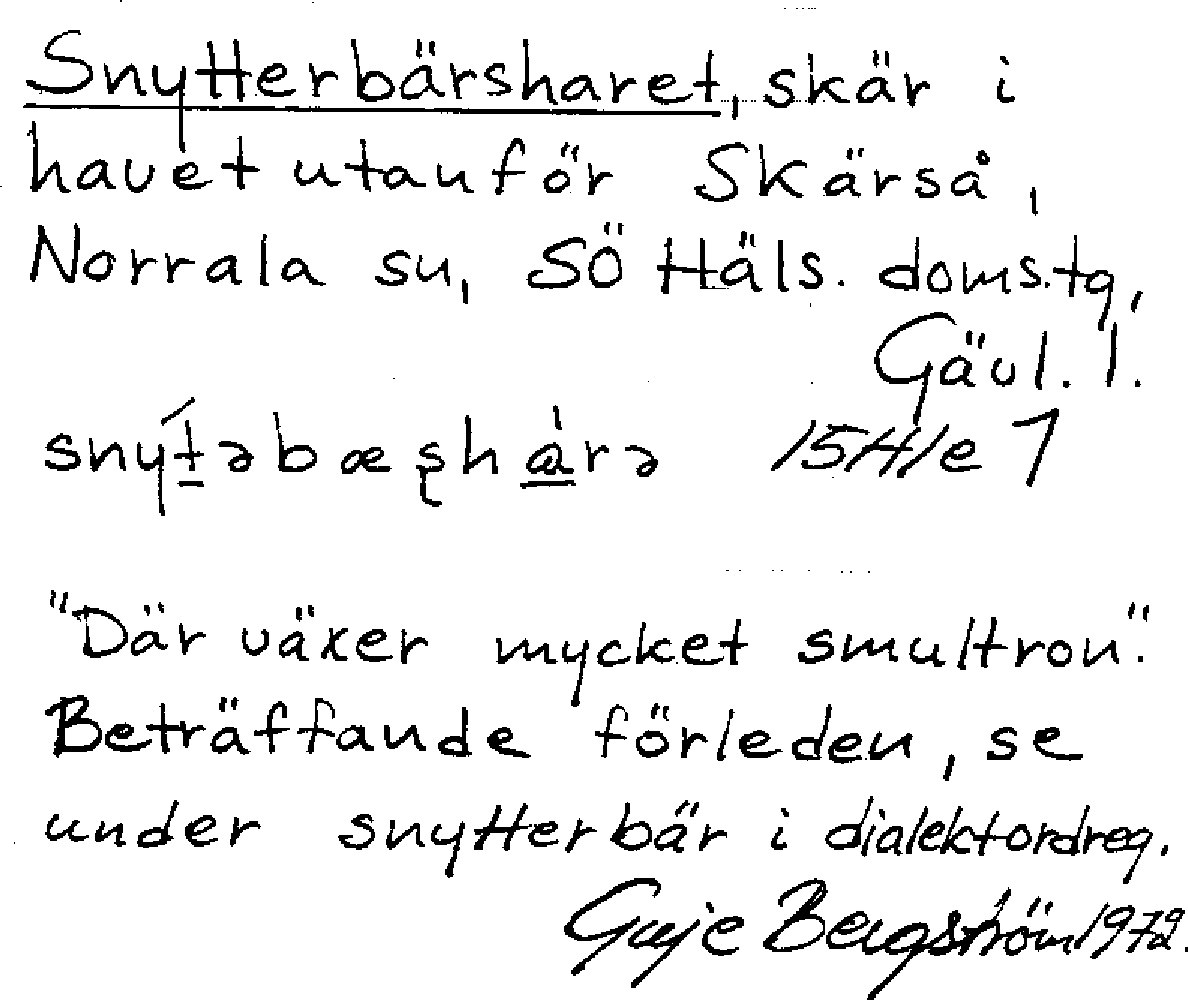 Snytterbärsharet, skär i
havet utanför Skärså,
Norrala sn, SÖ Häls. doms.tg,
Gävl. l.
snýt̲əbæʂhà̲rə 15H1e 7
"Där växer mycket smultron".
Beträffande förleden, se
under snytterbär i dialektordreg.
Bergström 1972.